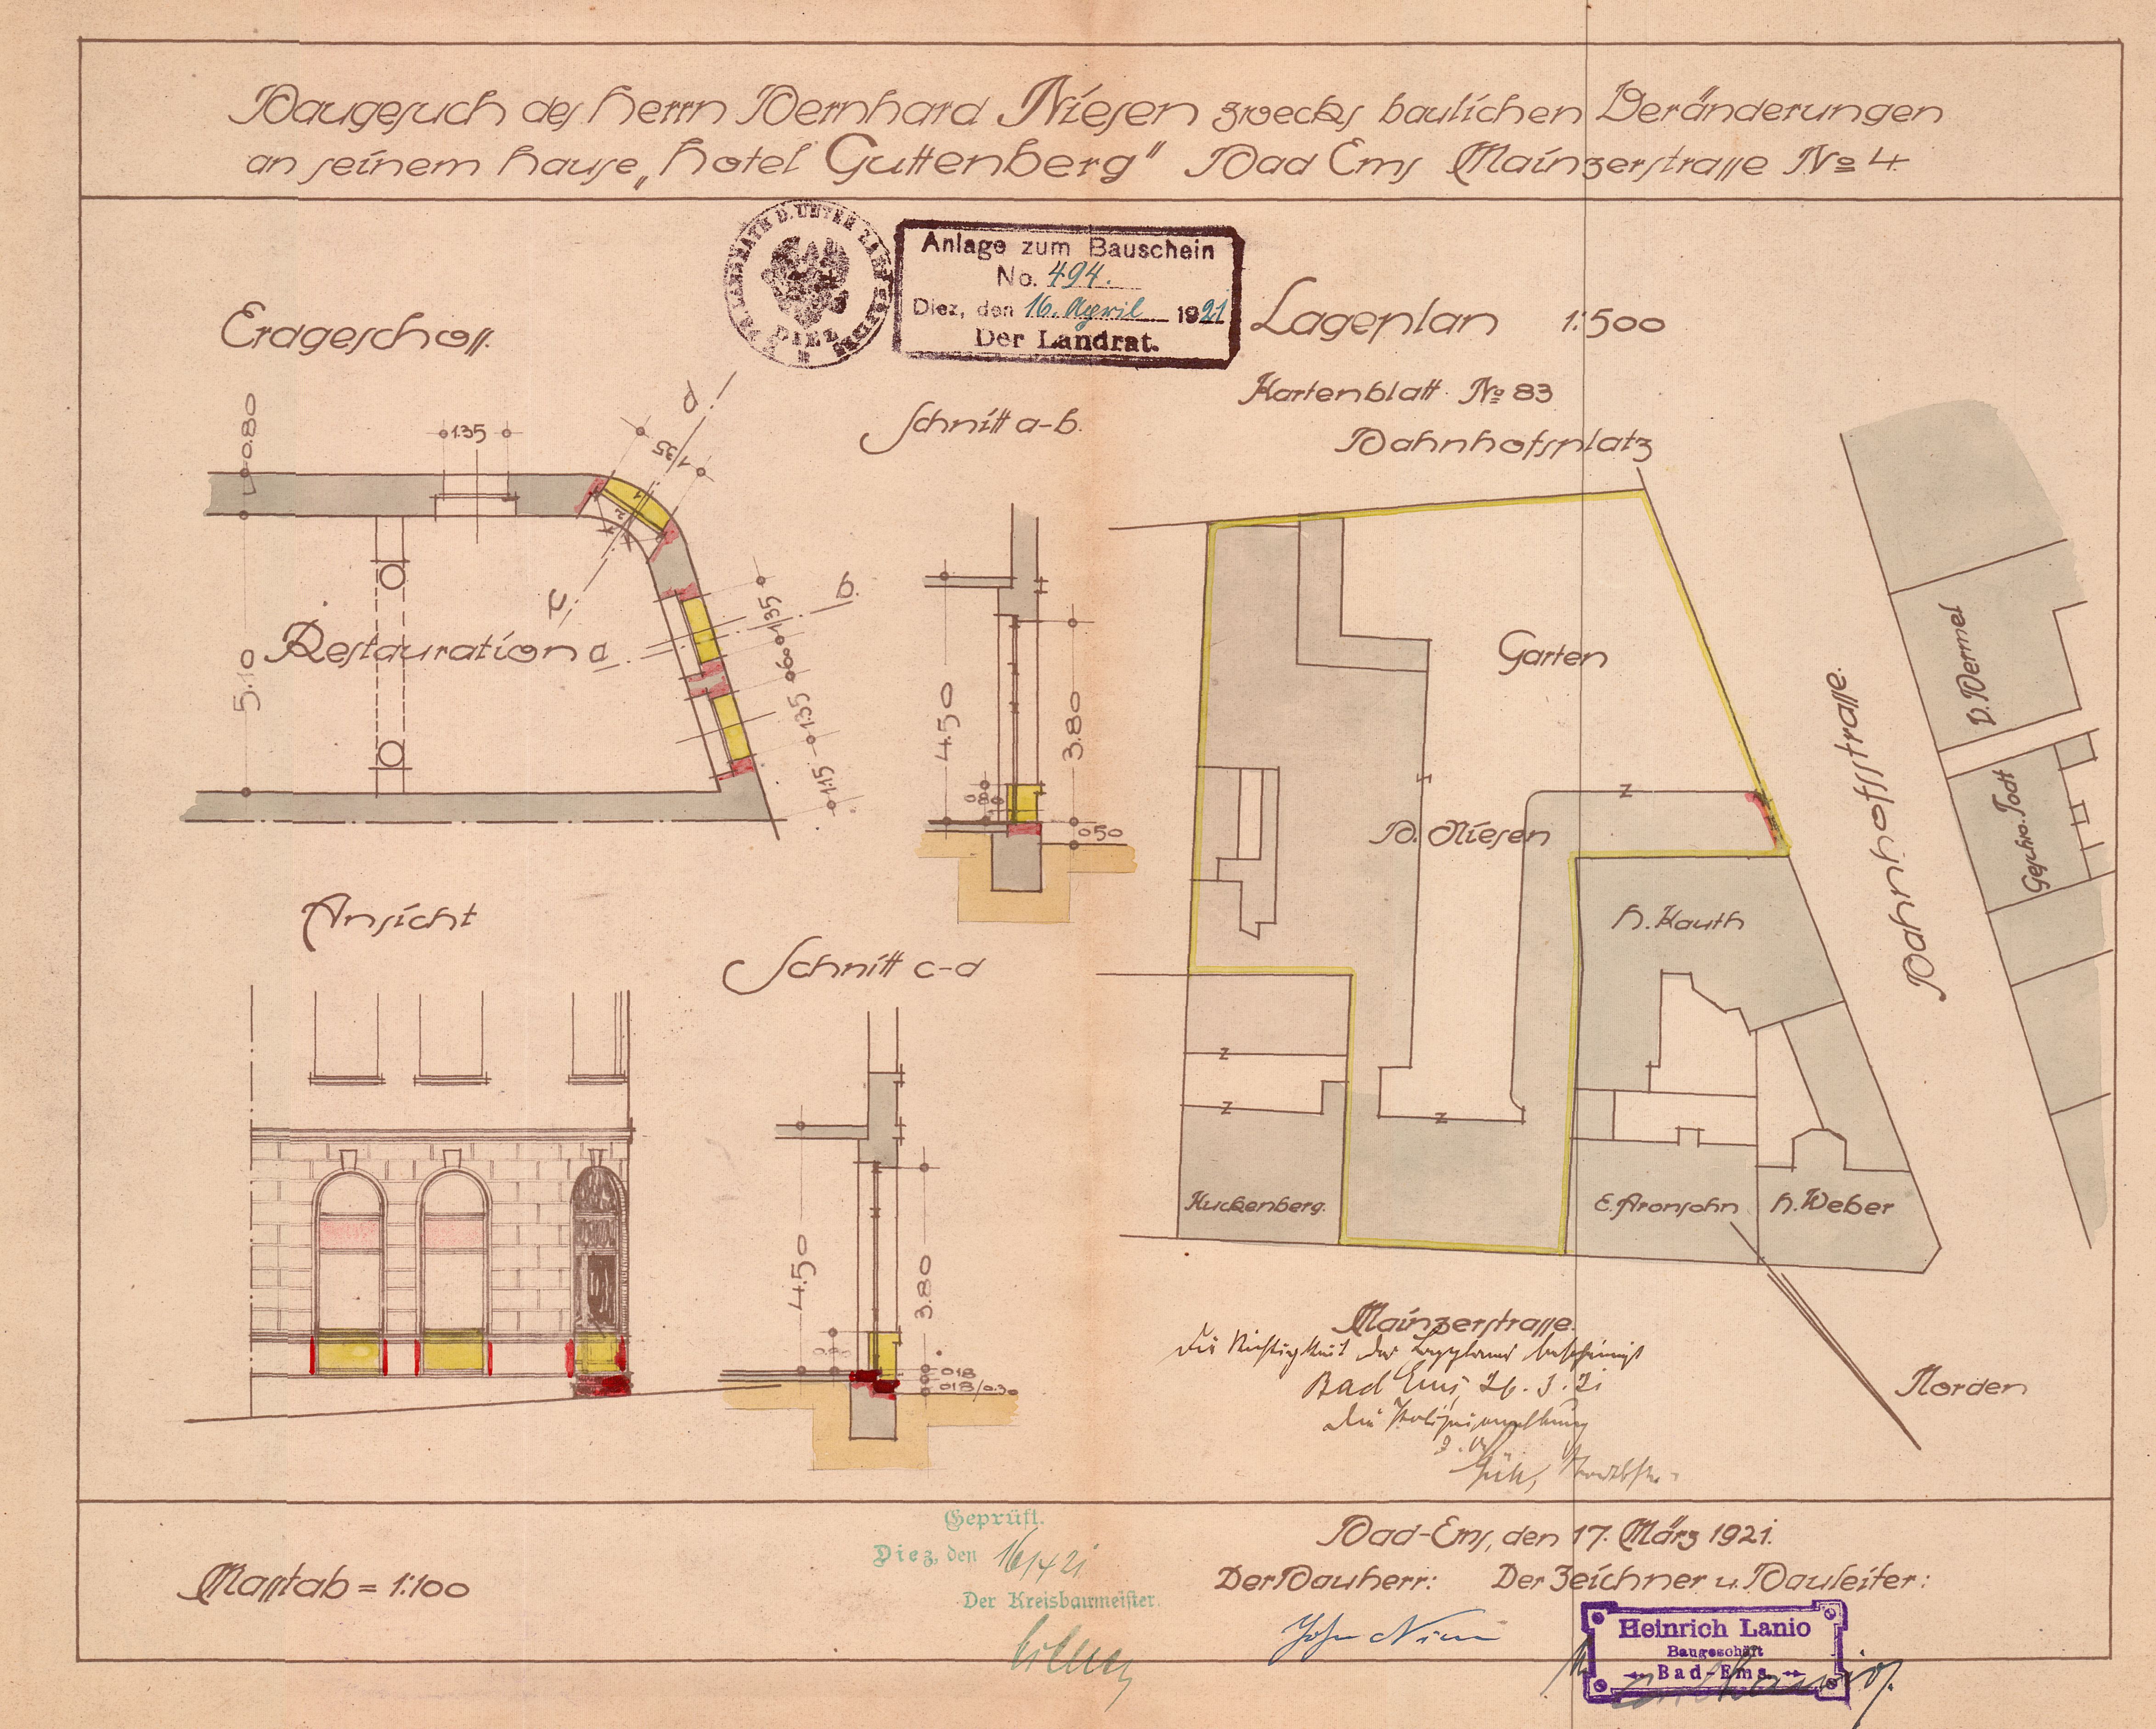 Baugesuch des Herrn Bernhard Niesen zwecks baulichen Veränderungen
an seinem Hause „Hotel Guttenberg" Bad Ems Mainzerstrasse No 4.
DIEZ
Anlage zum Bauschein
No. 494.
Diez, den 16. April 1921
Der Landrat.
Erdgeschoss.
0.80
1.35
1.35
d
c
1
2
b.
Restauration
a
5.10
1.35
0.60
1.35
1.15
Schnitt a-b.
4.50
3.80
0.80
0.50
Lageplan 1:500
Kartenblatt No 83
Bahnhofsplatz
Garten
B. Niesen
H. Kauth
Bahnhofsstrasse.
D. Bermel
Geschw. Todt
Kuckenberg.
E. Aronsohn
H. Weber
Mainzerstrasse.
Norden
Die Richtigkeit des Lageplanes bescheinigt
Bad Ems, 26. 3. 21
Die Polizeiverwaltung
Ansicht
Schnitt c-d
4.50
3.80
0.80
0.18
0.18/0.30
Masstab = 1:100
Geprüft.
Diez, den 16/4 21
Der Kreisbaumeister.
Bad-Ems, den 17. März 1921.
Der Bauherr: Der Zeichner u. Bauleiter:
Heinrich Lanio
Baugeschäft
Bad-Ems.